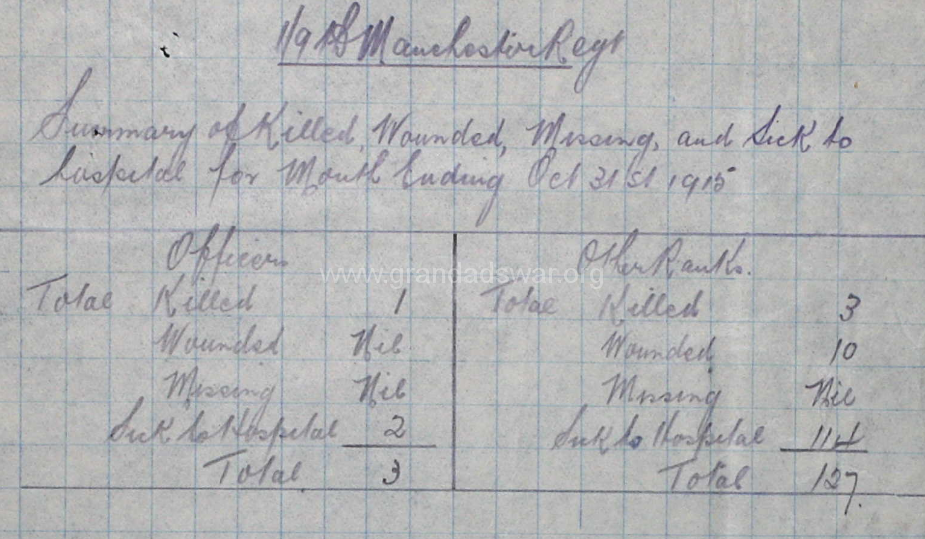 1/9th Manchester Regt
Summary of Killed, Wounded, Missing, and Sick to
hospital for Month Ending Oct 31st 1915
Officers Other Ranks.
www.grandadswar.org
Total Killed 1 Total Killed 3
Wounded Nil Wounded 10
Missing Nil Missing Nil
Sick to Hospital 2 Sick to Hospital 114
Total 3 Total 127.